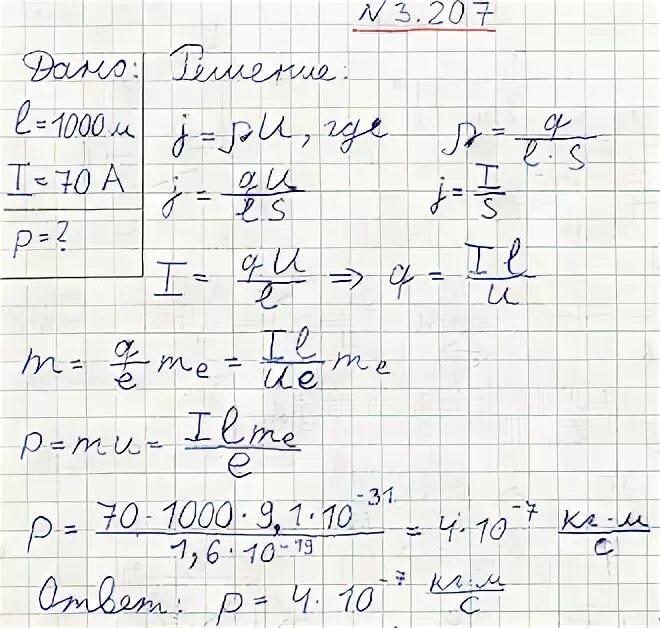 N 3.207
Дано: Решение:
l = 1000 м
I = 70 А
p = ?
j = ρu, где ρ = q/(l · S)
j = qu/(lS) j = I/S
I = qu/l ⇒ q = Il/u
m = q/e mₑ = Il/(ue) mₑ
p = mu = Ilmₑ/e
p = (70 · 1000 · 9,1 · 10⁻³¹)/(1,6 · 10⁻¹⁹) = 4 · 10⁻⁷ кг·м/с
Ответ: p = 4 · 10⁻⁷ кг·м/с